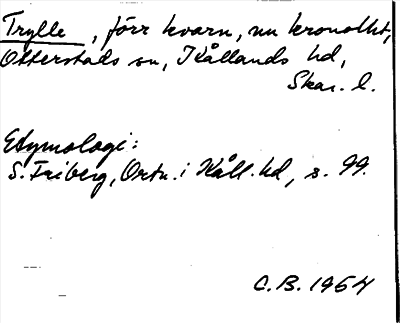 Trylle, förr kvarn, nu kronotht,
Otterstads sn, Kållands hd,
Skar. l.
Etymologi:
S. Friberg, Ortn. i Kåll. hd, s. 99.
C.B. 1954